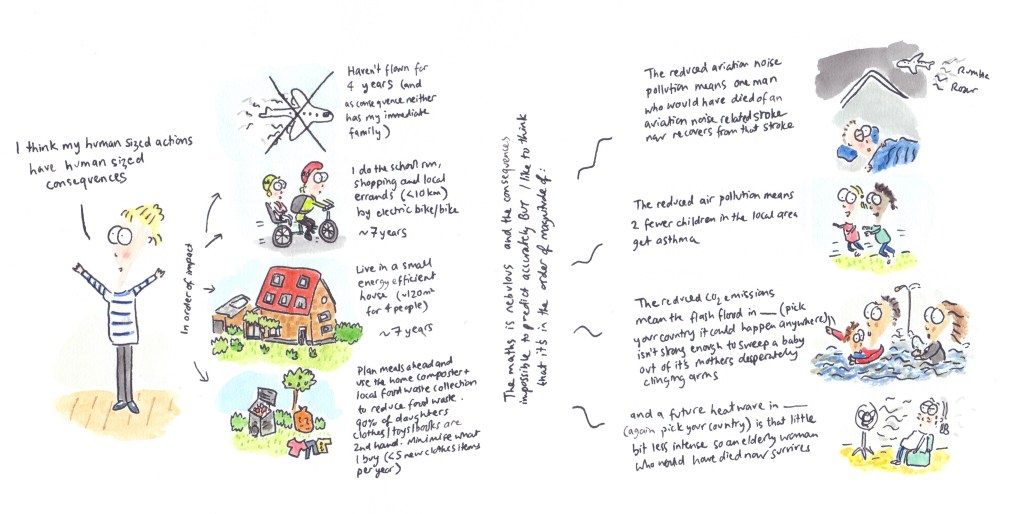 I think my human sized actions
have human sized
consequences
In order of impact
Haven't flown for
4 years (and
as consequence neither
has my immediate
family)
I do the school run,
shopping and local
errands (<10km)
by electric bike/bike
~7 years
Live in a small
energy efficient
house (~120m²
for 4 people)
~7 years
Plan meals ahead and
use the home composter +
local food waste collection
to reduce food waste.
90% of daughters
clothes/toys/books are
2nd hand. Minimise what
I buy (<5 new clothes items
per year)
The maths is nebulous and the consequences
impossible to predict accurately BUT I like to think
that it's in the order of magnitude of:
The reduced aviation noise
pollution means one man
who would have died of an
aviation noise related stroke
now recovers from that stroke
Rumble
Roar
The reduced air pollution means
2 fewer children in the local area
get asthma
The reduced CO₂ emissions
mean the flash flood in — (pick
your country it could happen anywhere)
isn't strong enough to sweep a baby
out of it's mothers desperately
clinging arms
and a future heatwave in —
(again pick your country) is that little
bit less intense so an elderly woman
who would have died now survives